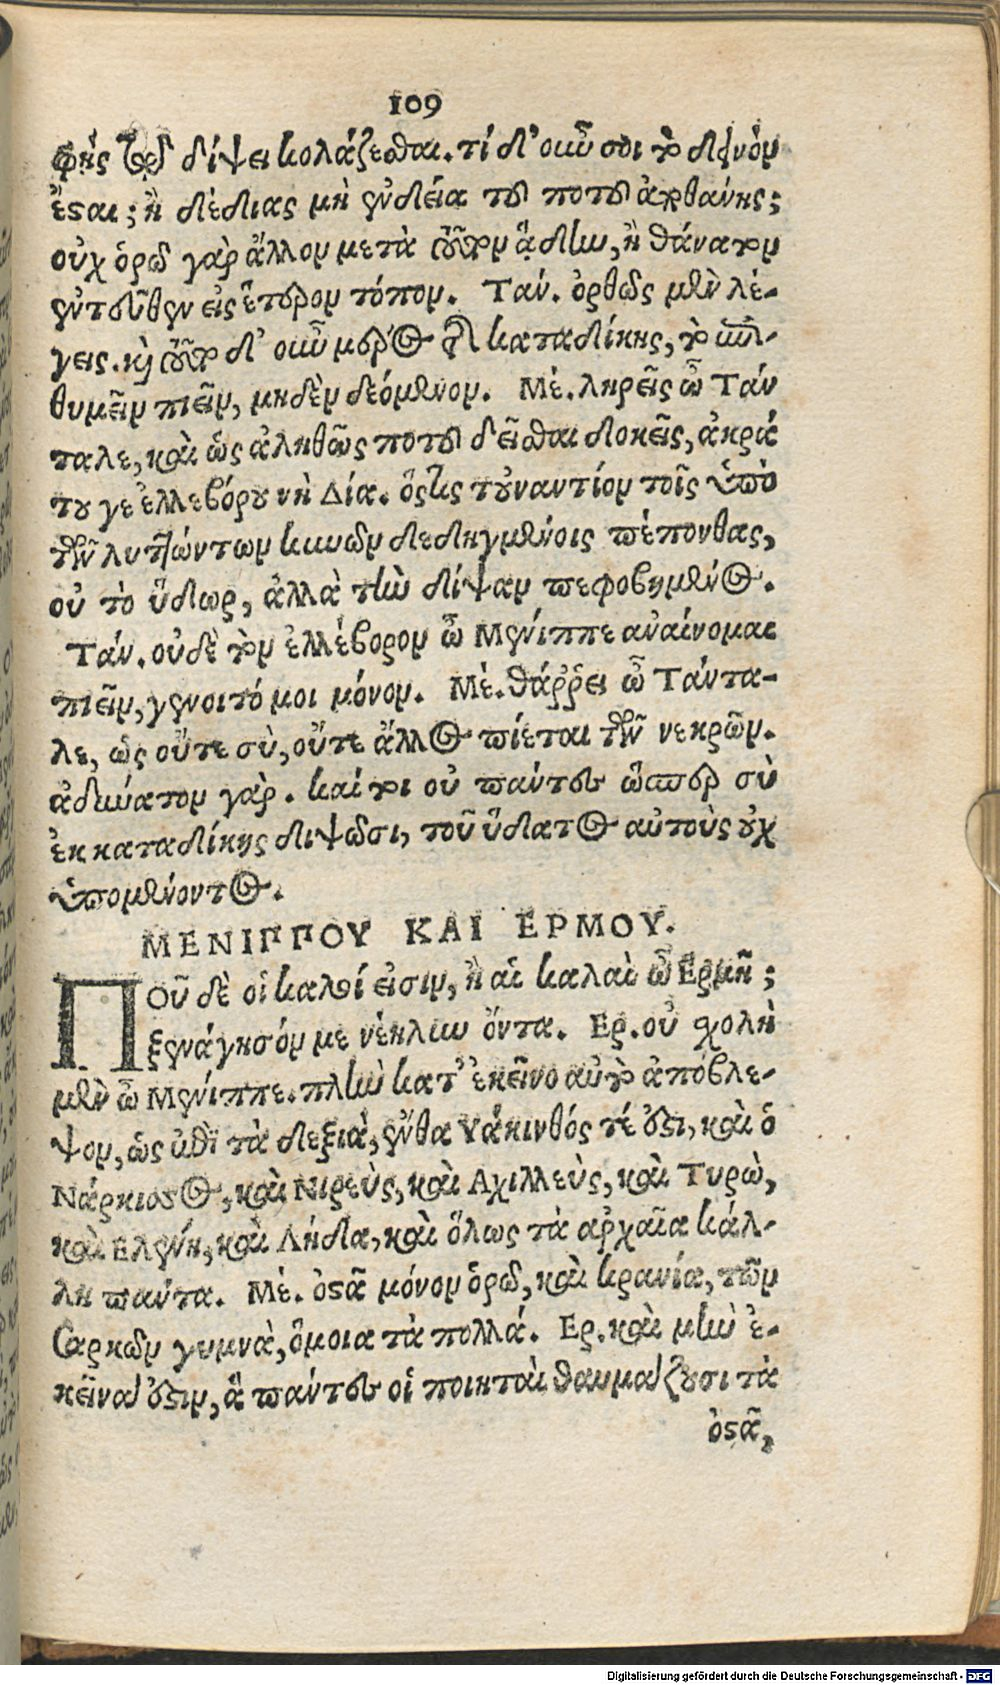 109
φῇς τῷ δίψει κολάζεσθαι. τί δ' οὖν σοι τὸ δεινὸν
ἔσαι; ἢ δέδιας μὴ ἐνδείᾳ τοῦ ποτοῦ ἀποθάνῃς;
οὐχ ὁρῶ γὰρ ἄλλον μετὰ τοῦτον ᾅδην, ἢ θάνατον
ἐντεῦθεν εἰς ἕτερον τόπον. Ταν. ὀρθῶς μὲν λέ-
γεις. καὶ τοῦτο δ' οὖν μέρος τῆς καταδίκης, τὸ ἐπι-
θυμεῖν πιεῖν, μηδὲν δεόμενον. Μέ. ληρεῖς ὦ Τάν
ταλε, καὶ ὡς ἀληθῶς ποτοῦ δεῖσθαι δοκεῖς, ἀκρά
του γε ἐλλεβόρου νὴ Δία. ὅστις τοὐναντίον τοῖς ὑπὸ
τῶν λυττώντων κυνῶν δεδηγμένοις πέπονθας,
οὐ τὸ ὕδωρ, ἀλλὰ τὴν δίψαν πεφοβημένος.
Τάν. οὐδὲ τὸν ἐλλέβορον ὦ Μένιππε ἀναίνομαι
πιεῖν, γένοιτό μοι μόνον. Μέ. θάῤῥει ὦ Τάντα-
λε, ὡς οὔτε σὺ, οὔτε ἄλλος πίεται τῶν νεκρῶν.
ἀδύνατον γὰρ. καί τοι οὐ πάντες ὥσπερ σὺ
ἐκ καταδίκης διψῶσι, τοῦ ὕδατος αὐτοὺς οὐχ
ὑπομένοντος.
ΜΕΝΙΠΠΟΥ ΚΑΙ ΕΡΜΟΥ.
ΠΟῦ δὲ οἱ καλοί εἰσιν, ἢ αἱ καλαὶ ὦ Ἑρμῆ;
ξενάγησόν με νέηλυν ὄντα. Ερ. οὐ σχολὴ
μὲν ὦ Μένιππε. πλὴν κατ' ἐκεῖνο αὐτὸ ἀπόβλε-
ψον, ὡς ἐπὶ τὰ δεξιὰ, ἔνθα Υάκινθός τέ ἐστι, καὶ ὁ
Νάρκισσος, καὶ Νιρεὺς, καὶ Αχιλλεὺς, καὶ Τυρὼ,
καὶ Ελένη, καὶ Λήδα, καὶ ὅλως τὰ ἀρχαῖα κάλ-
λη πάντα. Μέ. ὀστᾶ μόνον ὁρῶ, καὶ κρανία, τῶν
σαρκῶν γυμνὰ, ὅμοια τὰ πολλά. Ερ. καὶ μὴν ἐ-
κεῖνα ἐστιν, ἃ πάντες οἱ ποιηταὶ θαυμάζουσι τὰ
ὀστᾶ,
Digitalisierung gefördert durch die Deutsche Forschungsgemeinschaft - DFG